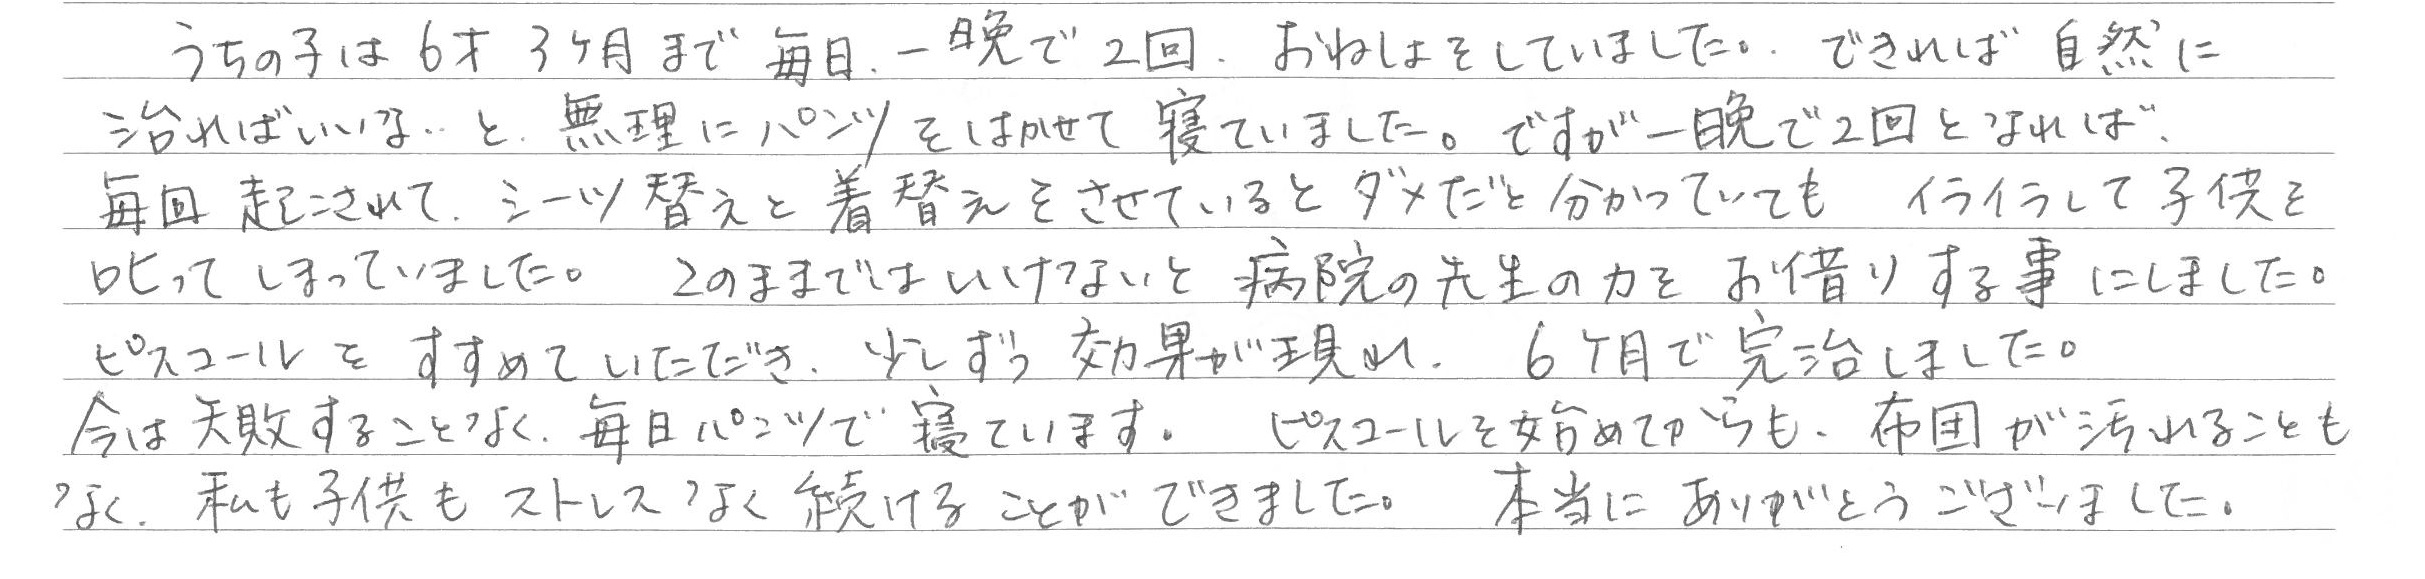 うちの子は6才3ケ月まで毎日、一晩で2回、おねしょをしていました。できれば自然に
治ればいいな…と、無理にパンツをはかせて寝ていました。ですが一晩で2回となれば、
毎回起こされて、シーツ替えと着替えをさせているとダメだと分かっていても イライラして子供を
叱ってしまっていました。 このままではいけないと病院の先生の力をお借りする事にしました。
ピスコールをすすめていただき、少しずつ効果が現れ、 6ケ月で完治しました。
今は失敗することなく、毎日パンツで寝ています。 ピスコールを始めてからも、布団が汚れることも
なく、私も子供もストレスなく続けることができました。 本当にありがとうございました。